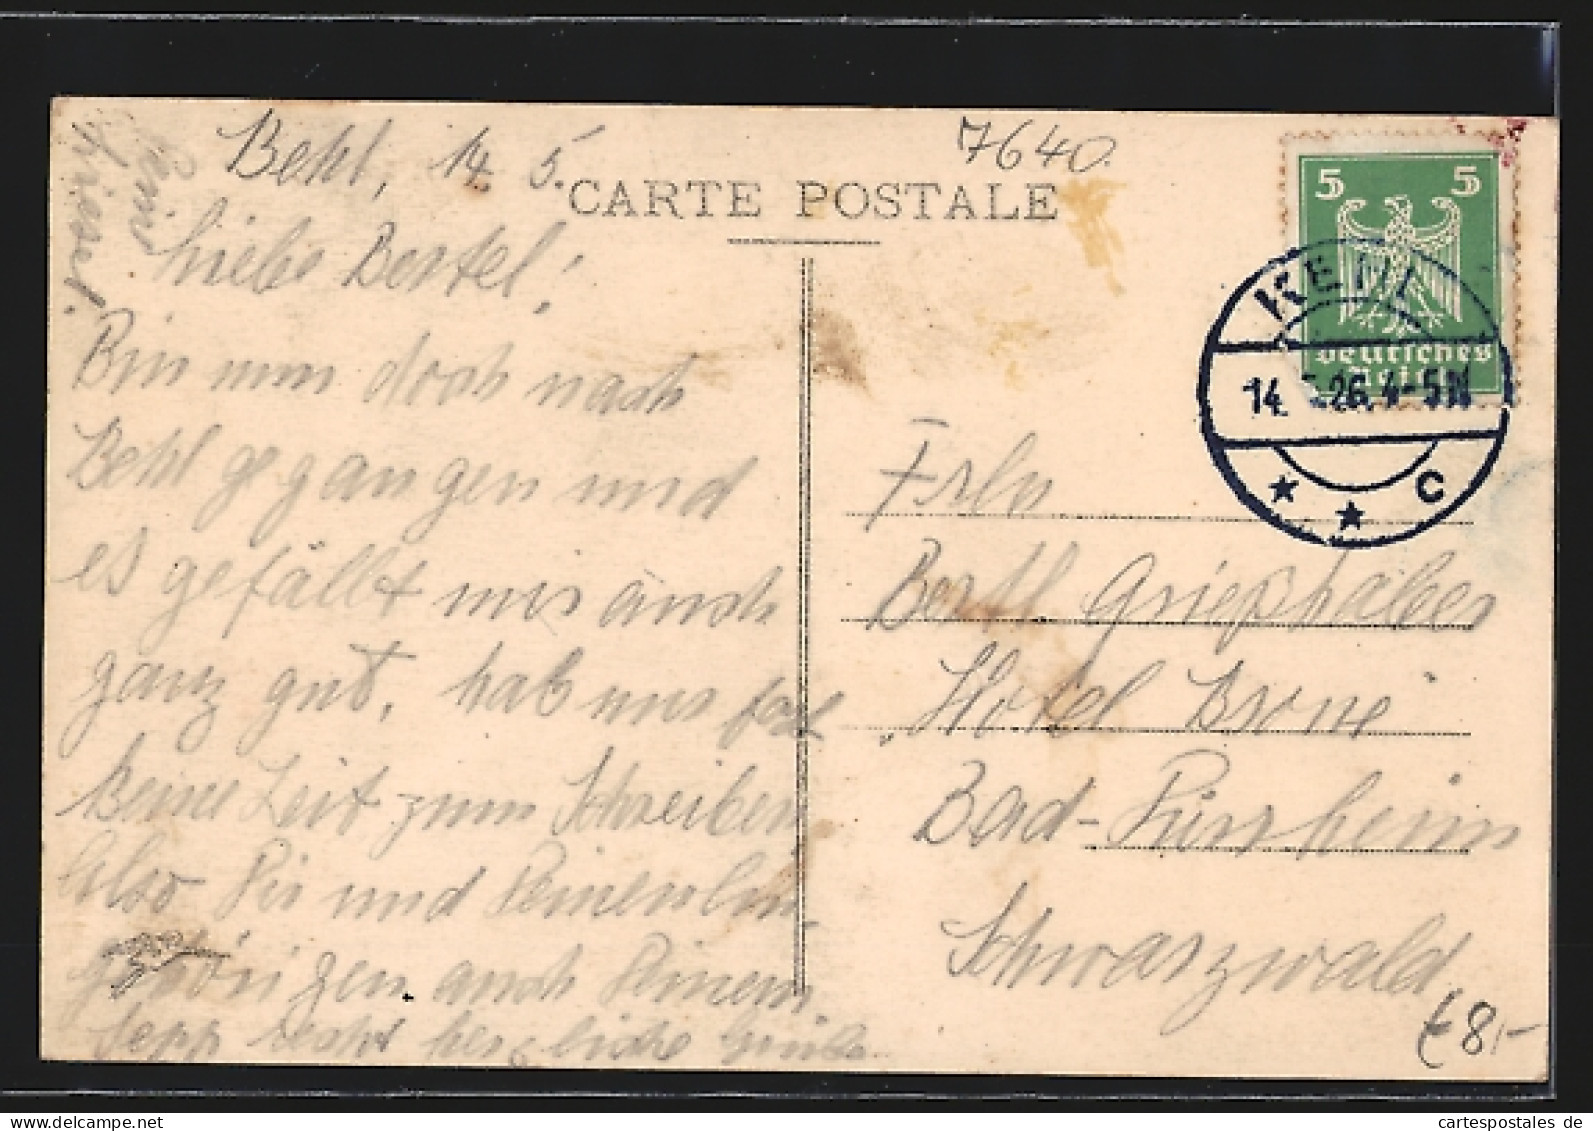 Behl, 14. 5.
7640.
CARTE POSTALE
Liebe Bertel!
Bin nun doch nach
Behl gegangen und
es gefällt mir auch
ganz gut, hab nur fast
keine Zeit zum Schreiben
Also Dir und Deinen An-
gehörigen auch Deinem
Sepp recht herzliche Grüße
5 5
Deutsches
Reich
KEHL
14. 5. 26. 4-5 N
C
Frln
Bertl Grießhaber
Hotel Krone
Bad-Dürrheim
Schwarzwald
€8,-
cartespostales de